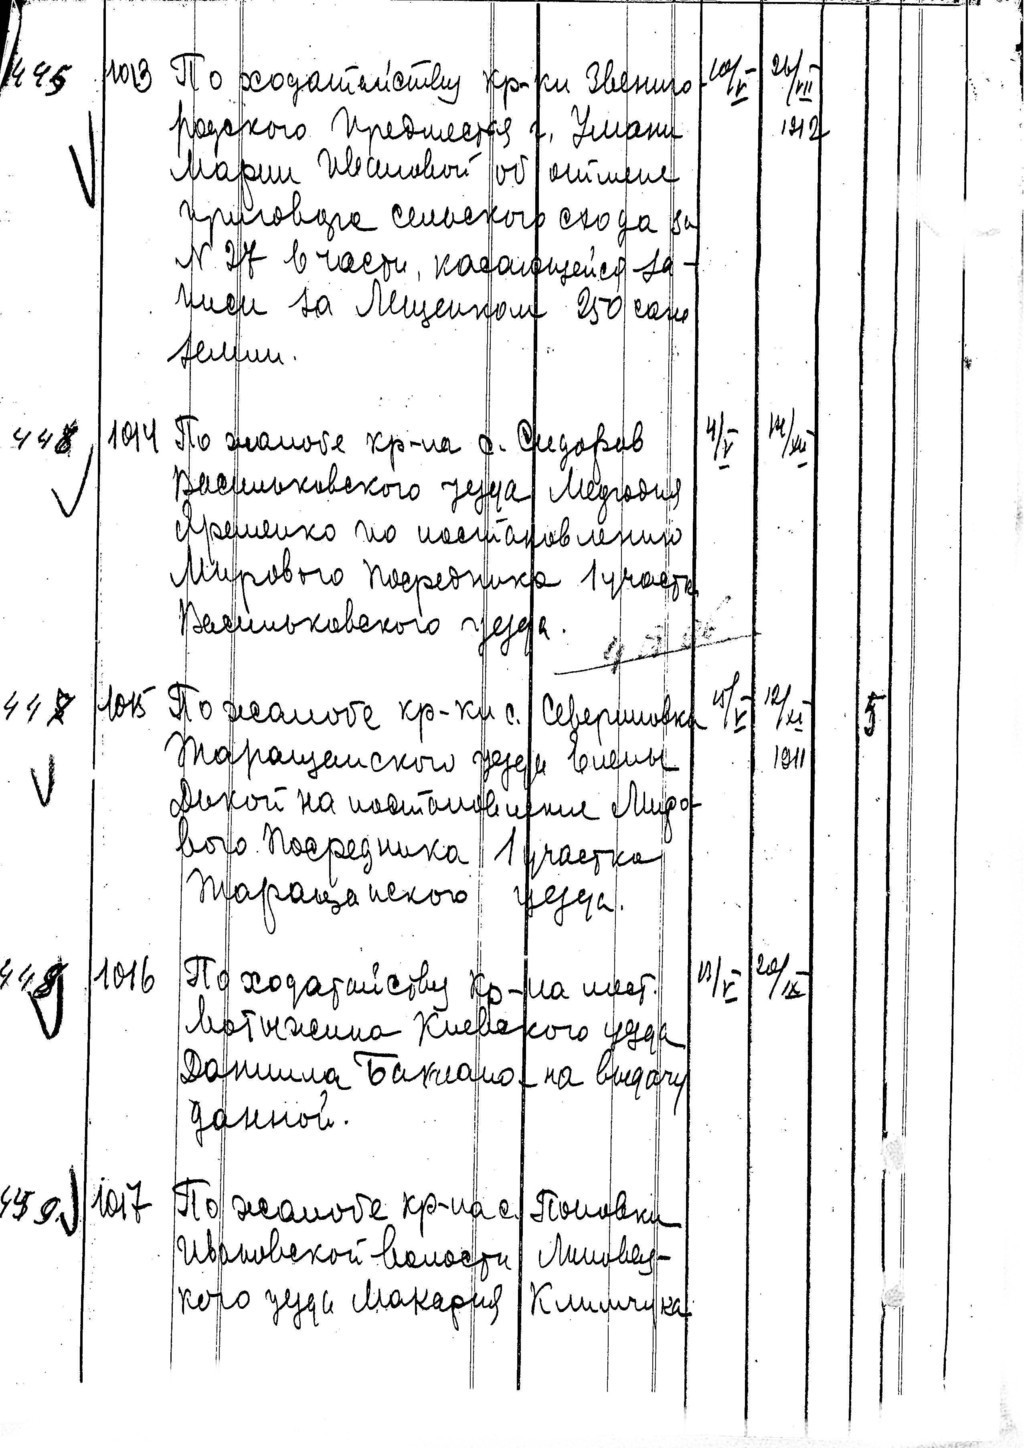 445 1013 По ходатайству кр-ки Звениго- 10/V 26/VII
родского предместья г. Умани 1912
Марии Ивановой об отмене
приговора сельского схода за
N 27 в части, касающейся за-
писи за Лещенком 250 саж
земли.
448 1014 По жалобе кр-на с. Сидоров 4/V 14/XII
Васильковского уезда Мефодия
Яременко по постановлению
Мирового Посредника 1 участка
Васильковского уезда.
1015 По жалобе кр-ки с. Севериновка 15/V 12/XI 5
Таращанского уезда Елены 1911
Дикой на постановление Миро-
вого Посредника 1 участка
Таращанского уезда.
449 1016 По ходатайству кр-на мест. 13/V 20/IX
Мотыжина Киевского уезда
Даниила Бакчало на выдачу
данной.
459. 1017 По жалобе кр-на с. Поповки
Ивановской волости Липовец-
кого уезда Макария Климчука